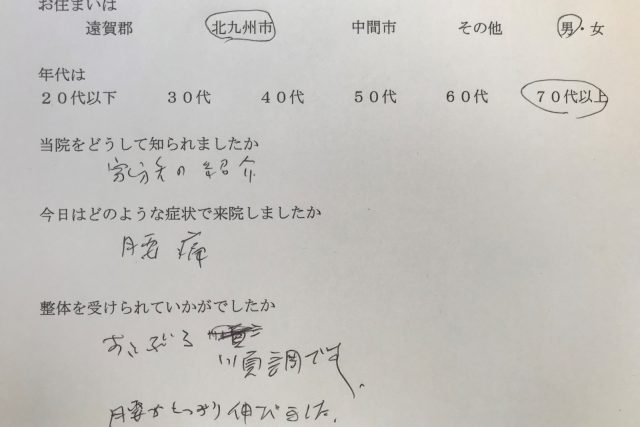 お住まいは
遠賀郡 北九州市 中間市 その他 男・女
年代は
20代以下 30代 40代 50代 60代 70代以上
当院をどうして知られましたか
家族の紹介
今日はどのような症状で来院しましたか
腰痛
整体を受けられていかがでしたか
順調です。
腰がしっかり伸びました。